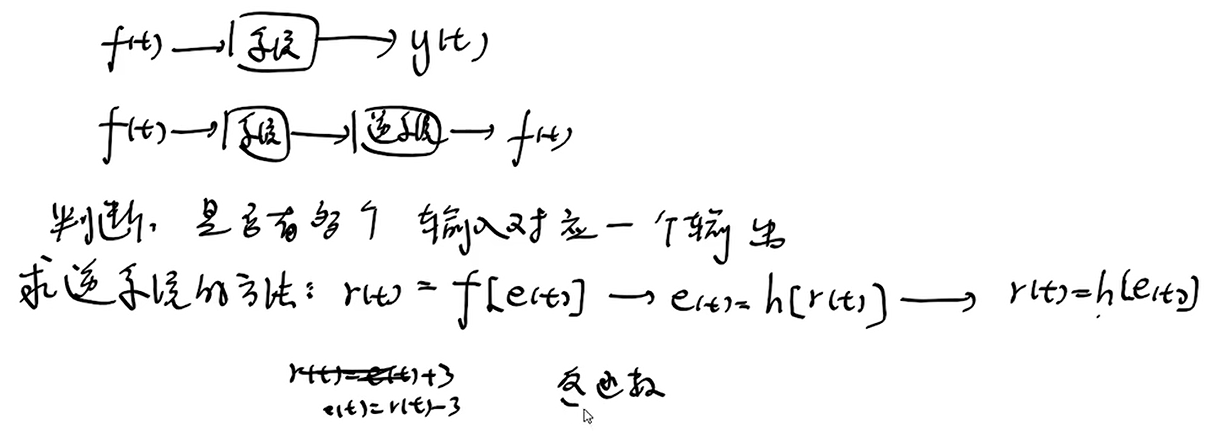 f(t) → 系统 → y(t)
f(t) → 系统 → 逆系统 → f(t)
判断: 是否有多个 输入对应一个输出
求逆系统的方法: r(t) = f[e(t)] → e(t) = h[r(t)] → r(t) = h[e(t)]
r(t)=e(t)+3 反函数
e(t)=r(t)-3